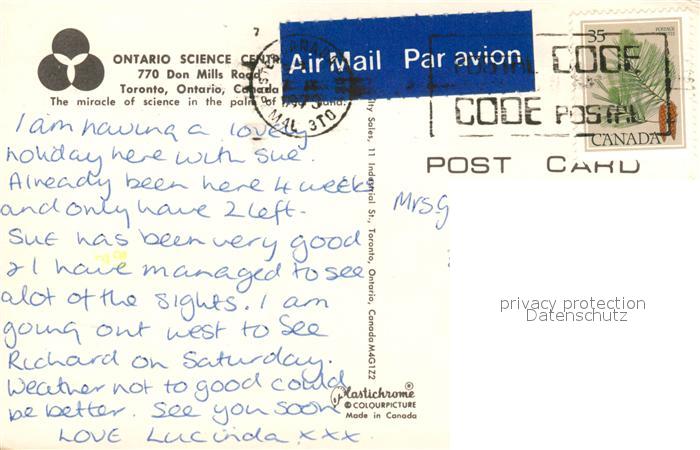 ONTARIO SCIENCE CENTR
770 Don Mills Road
Toronto, Ontario, Canada
The miracle of science in the palm of hand.
I am having a lovely
holiday here with Sue.
Already been here 4 weeks
and only have 2 left.
Sue has been very good
& I have managed to see
alot of the sights. I am
going out west to see
Richard on Saturday.
Weather not to good could
be better. See you soon
LOVE Lucinda xxx.
Air Mail Par avion
MAL 3TO
POSTAL CODE
CODE POSTAL
35
POSTAGE
CANADA
POST CARD
Mrs G
Sales, 11 Industrial St., Toronto, Ontario, Canada M4G1Z2
Plastichrome
© COLOURPICTURE
Made in Canada
privacy protection
Datenschutz